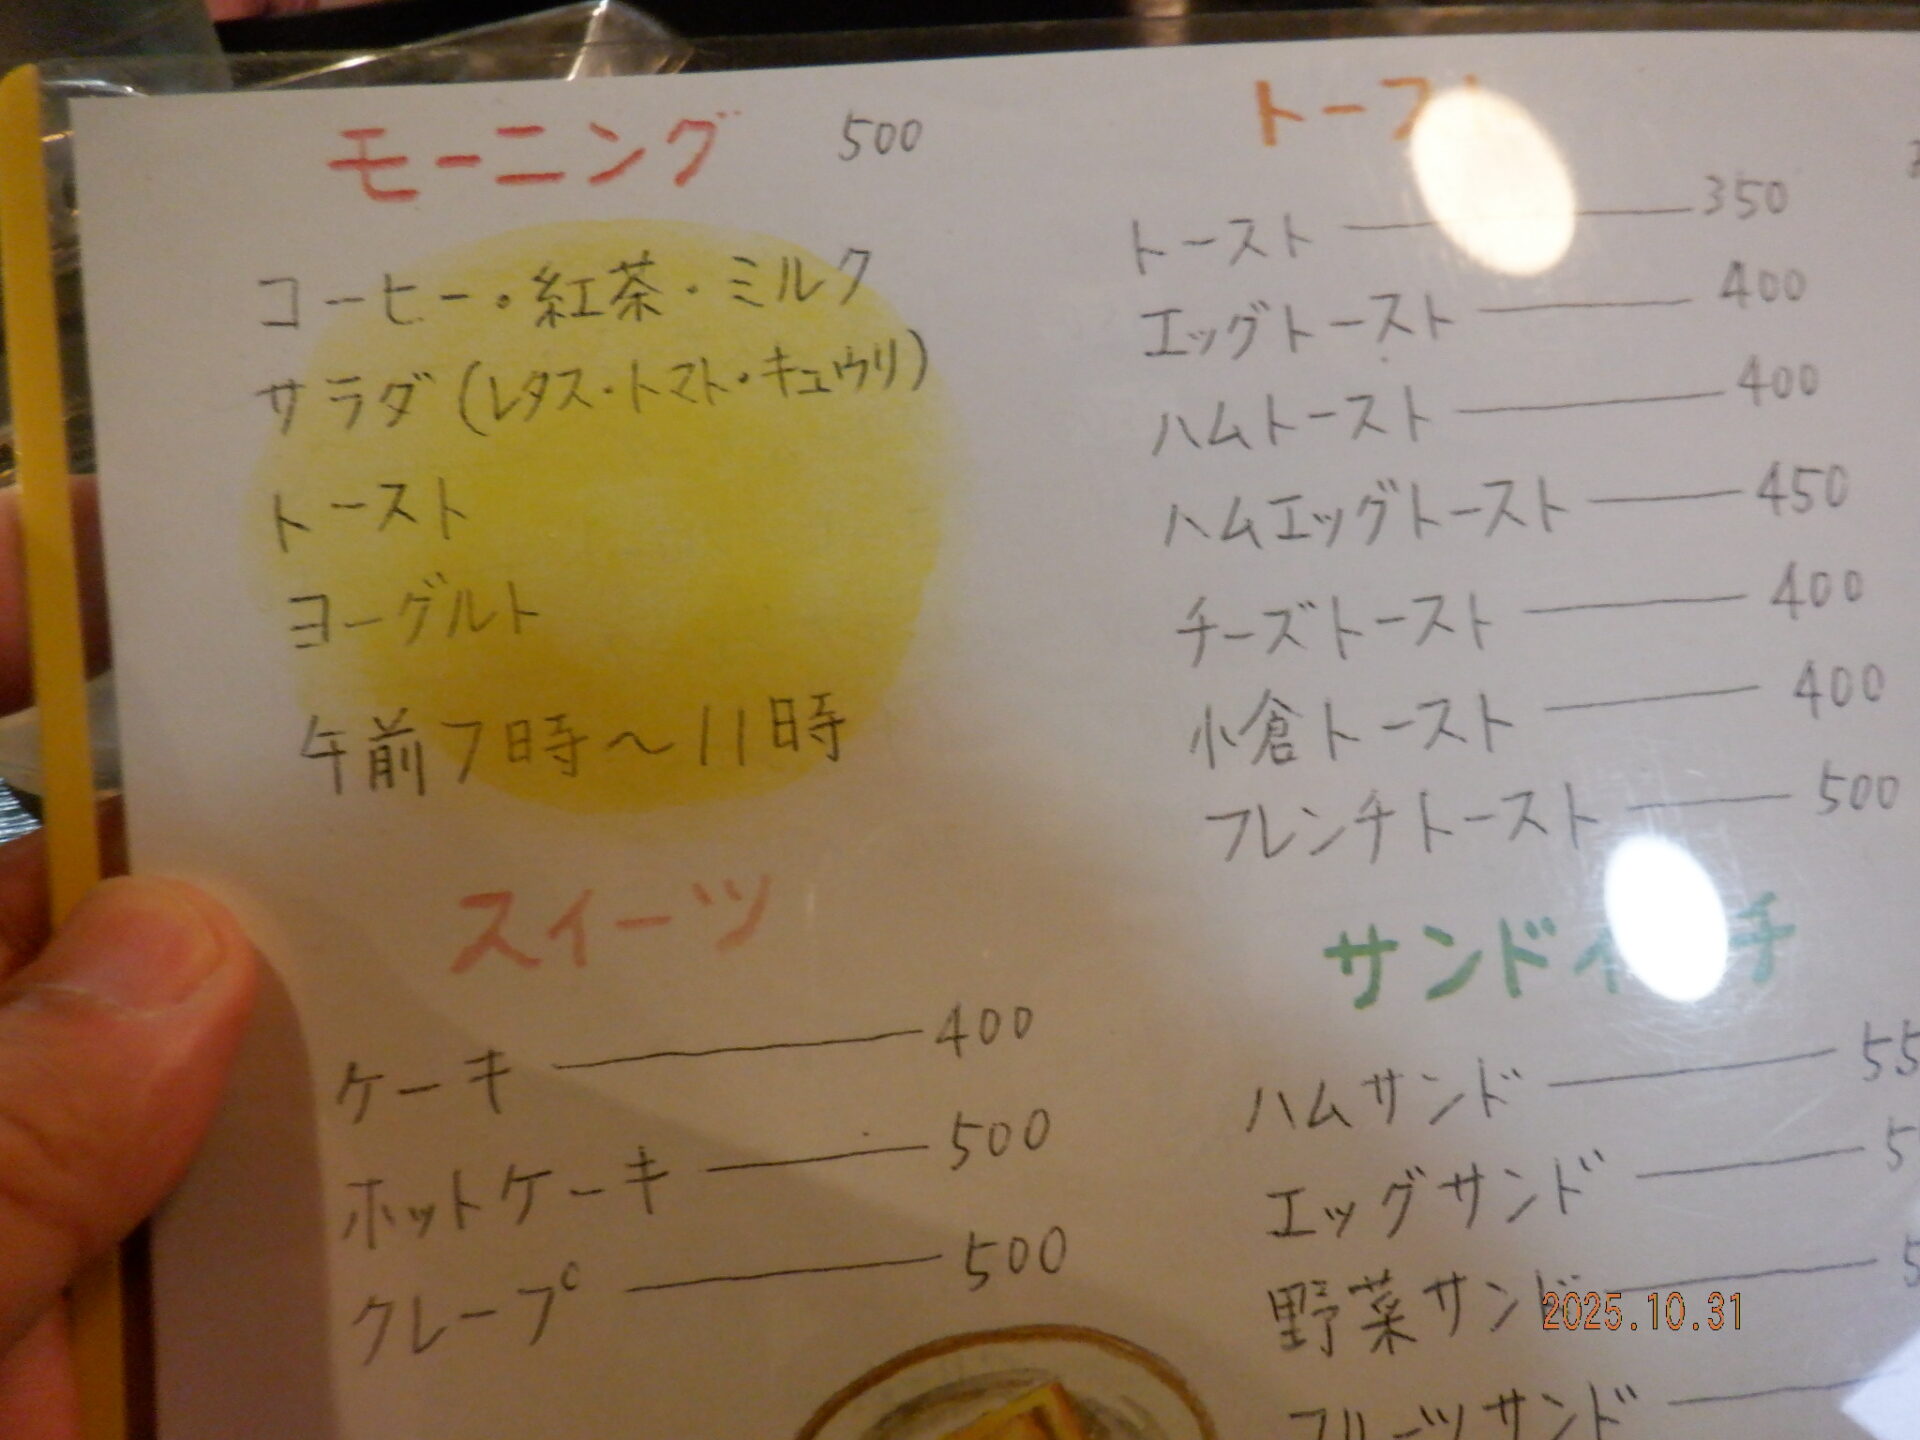 モーニング 500
コーヒー・紅茶・ミルク
サラダ(レタス・トマト・キュウリ)
トースト
ヨーグルト
午前7時～11時
スイーツ
ケーキ 400
ホットケーキ 500
クレープ 500
トースト
トースト 350
エッグトースト 400
ハムトースト 400
ハムエッグトースト 450
チーズトースト 400
小倉トースト 400
フレンチトースト 500
サンドイ チ
ハムサンド 55
エッグサンド 5
野菜サンド 5
フルーツサンド
2025.10.31